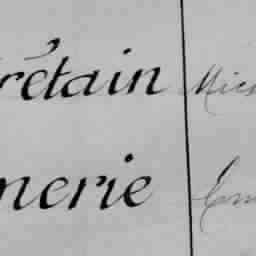 rétain Mic
nerie Em